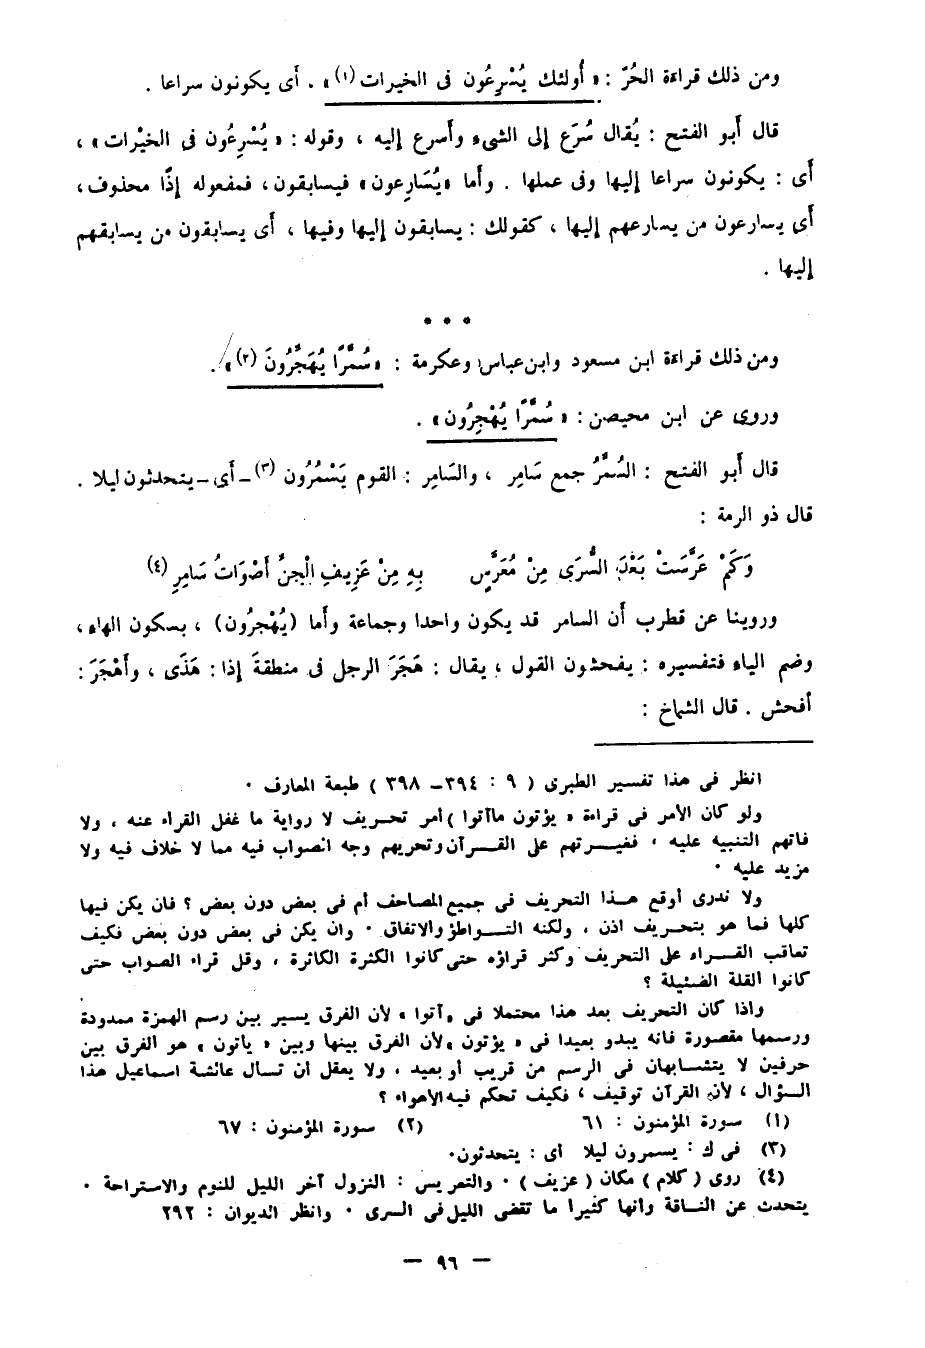 ومن ذلك قراءة الحُرّ : « أُولئك يُسْرِعُون فى الخيرات (١) » . أى يكونون سراعا .
قال أبو الفتح : يُقال سُرَع إلى الشىء وأسرع إليه ، وقوله : « يُسْرِعُون فى الخيْرات » ،
أَى : يكونون سراعا إليها وفى عملها . وأما «يُسَارِعون» فيسابقون ، فمفعوله إذًا محذوف ،
أَى يسارعون من يسارعهم إليها ، كقولك : يسابقون إليها وفيها ، أَى يسابقون من يسابقهم
إليها .
• • •
ومن ذلك قراءة ابن مسعود وابن عباس وعكرمة : « سُمَّرًا يُهَجِّرُونَ (٢) » .
وروى عن ابن محيصن : « سُمَّرًا يُهْجِرُون » .
قال أَبو الفتح : السُمَّرُ جمع سَامِر ، والسَامِر : القوم يَسْمُرُون (٣) – أَى – يتحدثون ليلا .
قال ذو الرمة :
وَكَمْ عَرَّسَتْ بَعْدَ السُّرَى مِنْ مُعَرَّسٍ بِهِ مِنْ عَزِيفِ الْجِنِّ أَصْوَاتُ سَامِرِ (٤)
وروينا عن قطرب أَن السامر قد يكون واحدا وجماعة وأما (يُهْجِرُون) ، بسكون الهاء ،
وضم الياء فتفسيره : يفحشون القول ، يقال : هَجَرَ الرجل فى منطقة إذا : هَذَى ، وأَهْجَرَ :
أفحش . قال الشماخ :
انظر فى هذا تفسير الطبرى ( ٩ : ٣٩٤ – ٣٩٨ ) طبعة المعارف .
ولو كان الأمر فى قراءة « يؤتون ماآتوا ) أمر تحريف لا رواية ما غفل القراء عنه ، ولا
فاتهم التنبيه عليه ، فغيرتهم على القرآن وتحريهم وجه الصواب فيه مما لا خلاف فيه ولا
مزيد عليه .
ولا ندرى أوقع هذا التحريف فى جميع المصاحف أم فى بعض دون بعض ؟ فان يكن فيها
كلها فما هو بتحريف اذن ، ولكنه التواطؤ والاتفاق . وان يكن فى بعض دون بعض فكيف
تعاقب القراء على التحريف وكثر قراؤه حتى كانوا الكثرة الكاثرة ، وقل قراء الصواب حتى
كانوا القلة الضئيلة ؟
واذا كان التحريف بعد هذا محتملا فى «آتوا » لأن الفرق يسير بين رسم الهمزة ممدودة
ورسمها مقصورة فانه يبدو بعيدا فى « يؤتون » لأن الفرق بينها وبين « ياتون » هو الفرق بين
حرفين لا يتشابهان فى الرسم من قريب أو بعيد ، ولا يعقل أن تسال عائشة اسماعيل هذا
السؤال ، لأن القرآن توقيف ، فكيف تحكم فيه الأهواء ؟
(١) سورة المؤمنون : ٦١ (٢) سورة المؤمنون : ٦٧
(٣) فى ك : يسمرون ليلا أى : يتحدثون.
(٤) روى ( كلام ) مكان ( عزيف ) . والتعريس : النزول آخر الليل للنوم والاستراحة .
يتحدث عن الناقة وأنها كثيرا ما تقضى الليل فى السرى . وانظر الديوان : ٢٩٢
— ٩٦ —